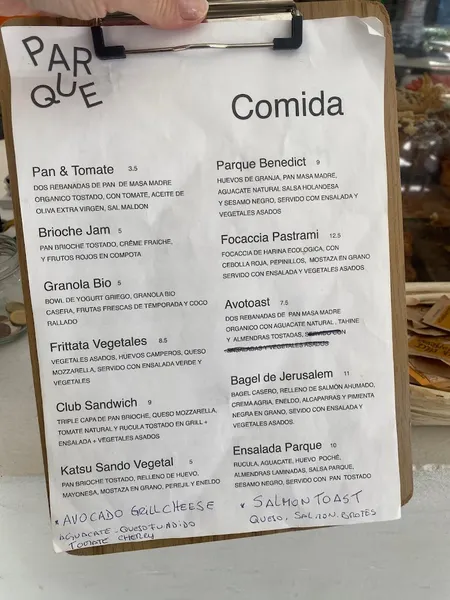 PARQUE
Comida
Pan & Tomate 3.5
DOS REBANADAS DE PAN DE MASA MADRE
ORGANICO TOSTADO, CON TOMATE, ACEITE DE
OLIVA EXTRA VIRGEN, SAL MALDON
Brioche Jam 5
PAN BRIOCHE TOSTADO, CRÈME FRAICHE,
Y FRUTOS ROJOS EN COMPOTA
Granola Bio 5
BOWL DE YOGURT GRIEGO, GRANOLA BIO
CASERA, FRUTAS FRESCAS DE TEMPORADA Y COCO
RALLADO
Frittata Vegetales 8.5
VEGETALES ASADOS, HUEVOS CAMPEROS, QUESO
MOZZARELLA, SERVIDO CON ENSALADA VERDE Y
VEGETALES
Club Sandwich 9
TRIPLE CAPA DE PAN BRIOCHE, QUESO MOZZARELLA,
TOMATE NATURAL Y RUCULA TOSTADO EN GRILL +
ENSALADA + VEGETALES ASADOS
Katsu Sando Vegetal 5
PAN BRIOCHE TOSTADO, RELLENO DE HUEVO,
MAYONESA, MOSTAZA EN GRANO, PEREJIL Y ENELDO
* AVOCADO GRILL CHEESE
AGUACATE - QUESO FUNDIDO
TOMATE CHERRY
Parque Benedict 9
HUEVOS DE GRANJA, PAN MASA MADRE,
AGUACATE NATURAL SALSA HOLANDESA
Y SESAMO NEGRO, SERVIDO CON ENSALADA Y
VEGETALES ASADOS
Focaccia Pastrami 12.5
FOCACCIA DE HARINA ECOLOGICA, CON
CEBOLLA ROJA, PEPINILLOS, MOSTAZA EN GRANO
SERVIDO CON ENSALADA Y VEGETALES ASADOS
Avotoast 7.5
DOS REBANADAS DE PAN MASA MADRE
ORGANICO CON AGUACATE NATURAL, TAHINE
Y ALMENDRAS TOSTADAS, SERVIDO CON
ENSALADAS Y VEGETALES ASADOS
Bagel de Jerusalem 11
BAGEL CASERO, RELLENO DE SALMÓN AHUMADO,
CREMA AGRIA, ENELDO, ALCAPARRAS Y PIMIENTA
NEGRA EN GRANO, SEVIDO CON ENSALADA Y
VEGETALES ASADOS.
Ensalada Parque 10
RUCULA, AGUACATE, HUEVO POCHÉ,
ALMENDRAS LAMINADAS, SALSA PARQUE,
SESAMO NEGRO, SERVIDO CON PAN TOSTADO
* SALMON TOAST
QUESO, SALMON, BROTES